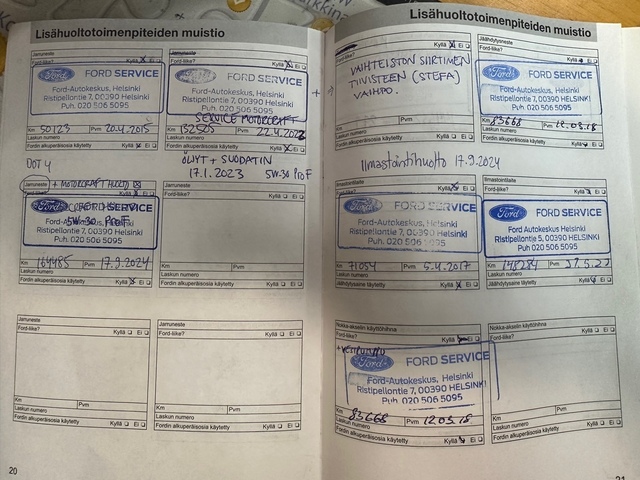 Lisähuoltotoimenpiteiden muistio
Jarruneste
Ford-liike? Kyllä Ei
Ford FORD SERVICE
Ford-Autokeskus, Helsinki
Ristipellontie 7, 00390 Helsinki
Puh. 020 506 5095
Km 50123 Pvm 20.4.2015
Laskun numero
Fordin alkuperäisosia käytetty Kyllä Ei
Jarruneste
Kyllä Ei
Ford FORD SERVICE
Ford-Autokeskus, Helsinki
Ristipellontie 7, 00390 Helsinki
Puh. 020 506 5095
SERVICE MOTORCRAFT
Km 132505 Pvm 22.4.2022
Laskun numero
Fordin alkuperäisosia käytetty Kyllä Ei
ÖLJYT + SUODATIN
17.1.2023 5W-30
DOT 4
Jarruneste + MOTORCRAFT
Kyllä Ei
Ford FORD SERVICE
5W-30
Ford-Autokeskus, Helsinki
Ristipellontie 7, 00390 Helsinki
Puh. 020 506 5095
Km 164485 Pvm 17.9.2024
Laskun numero
Fordin alkuperäisosia käytetty Kyllä Ei
Jarruneste
Ford-liike? Kyllä Ei
Km Pvm
Laskun numero
Fordin alkuperäisosia käytetty Kyllä Ei
Jarruneste
Ford-liike? Kyllä Ei
Km Pvm
Laskun numero
Fordin alkuperäisosia käytetty Kyllä Ei
Jarruneste
Ford-liike? Kyllä Ei
Km Pvm
Laskun numero
Fordin alkuperäisosia käytetty Kyllä Ei
20
Lisähuoltotoimenpiteiden muistio
Kyllä Ei
VAIHTEISTON SIIRTIMEN
TIIVISTEEN (STEFA)
VAIHTO.
Km Pvm
Laskun numero
Fordin alkuperäisosia käytetty Kyllä Ei
Jäähdytysneste
Ford-liike? Kyllä Ei
Ford FORD SERVICE
Ford-Autokeskus, Helsinki
Ristipellontie 7, 00390 HELSINKI
Puh. 020 506 5095
Km 83668 Pvm 12.03.18
Laskun numero
Fordin alkuperäisosia käytetty Kyllä Ei
Ilmastointihuolto 17.9.2024
Ilmastointilaite
Ford-liike? Kyllä Ei
Ford FORD SERVICE
Ford-Autokeskus, Helsinki
Ristipellontie 7, 00390 HELSINKI
Puh. 020 506 5095
Km 71054 Pvm 5.4.2017
Laskun numero
Jäähdytysaine täytetty Kyllä Ei
Ilmastointilaite
Ford-liike? Kyllä Ei
Ford FORD SERVICE
Ford-Autokeskus, Helsinki
Ristipellontie 5, 00390 HELSINKI
Puh. 020 506 5095
Km 148284 Pvm
Laskun numero
Jäähdytysaine täytetty Kyllä Ei
Nokka-akselin käyttöhihna
Ford-liike? Kyllä Ei
FORD SERVICE
Ford-Autokeskus, Helsinki
Ristipellontie 7, 00390 HELSINKI
Puh. 020 506 5095
Km 83668 Pvm 12.03.18
Laskun numero
Fordin alkuperäisosia käytetty Kyllä Ei
Nokka-akselin käyttöhihna
Ford-liike? Kyllä Ei
Km Pvm
Laskun numero
Fordin alkuperäisosia käytetty Kyllä Ei